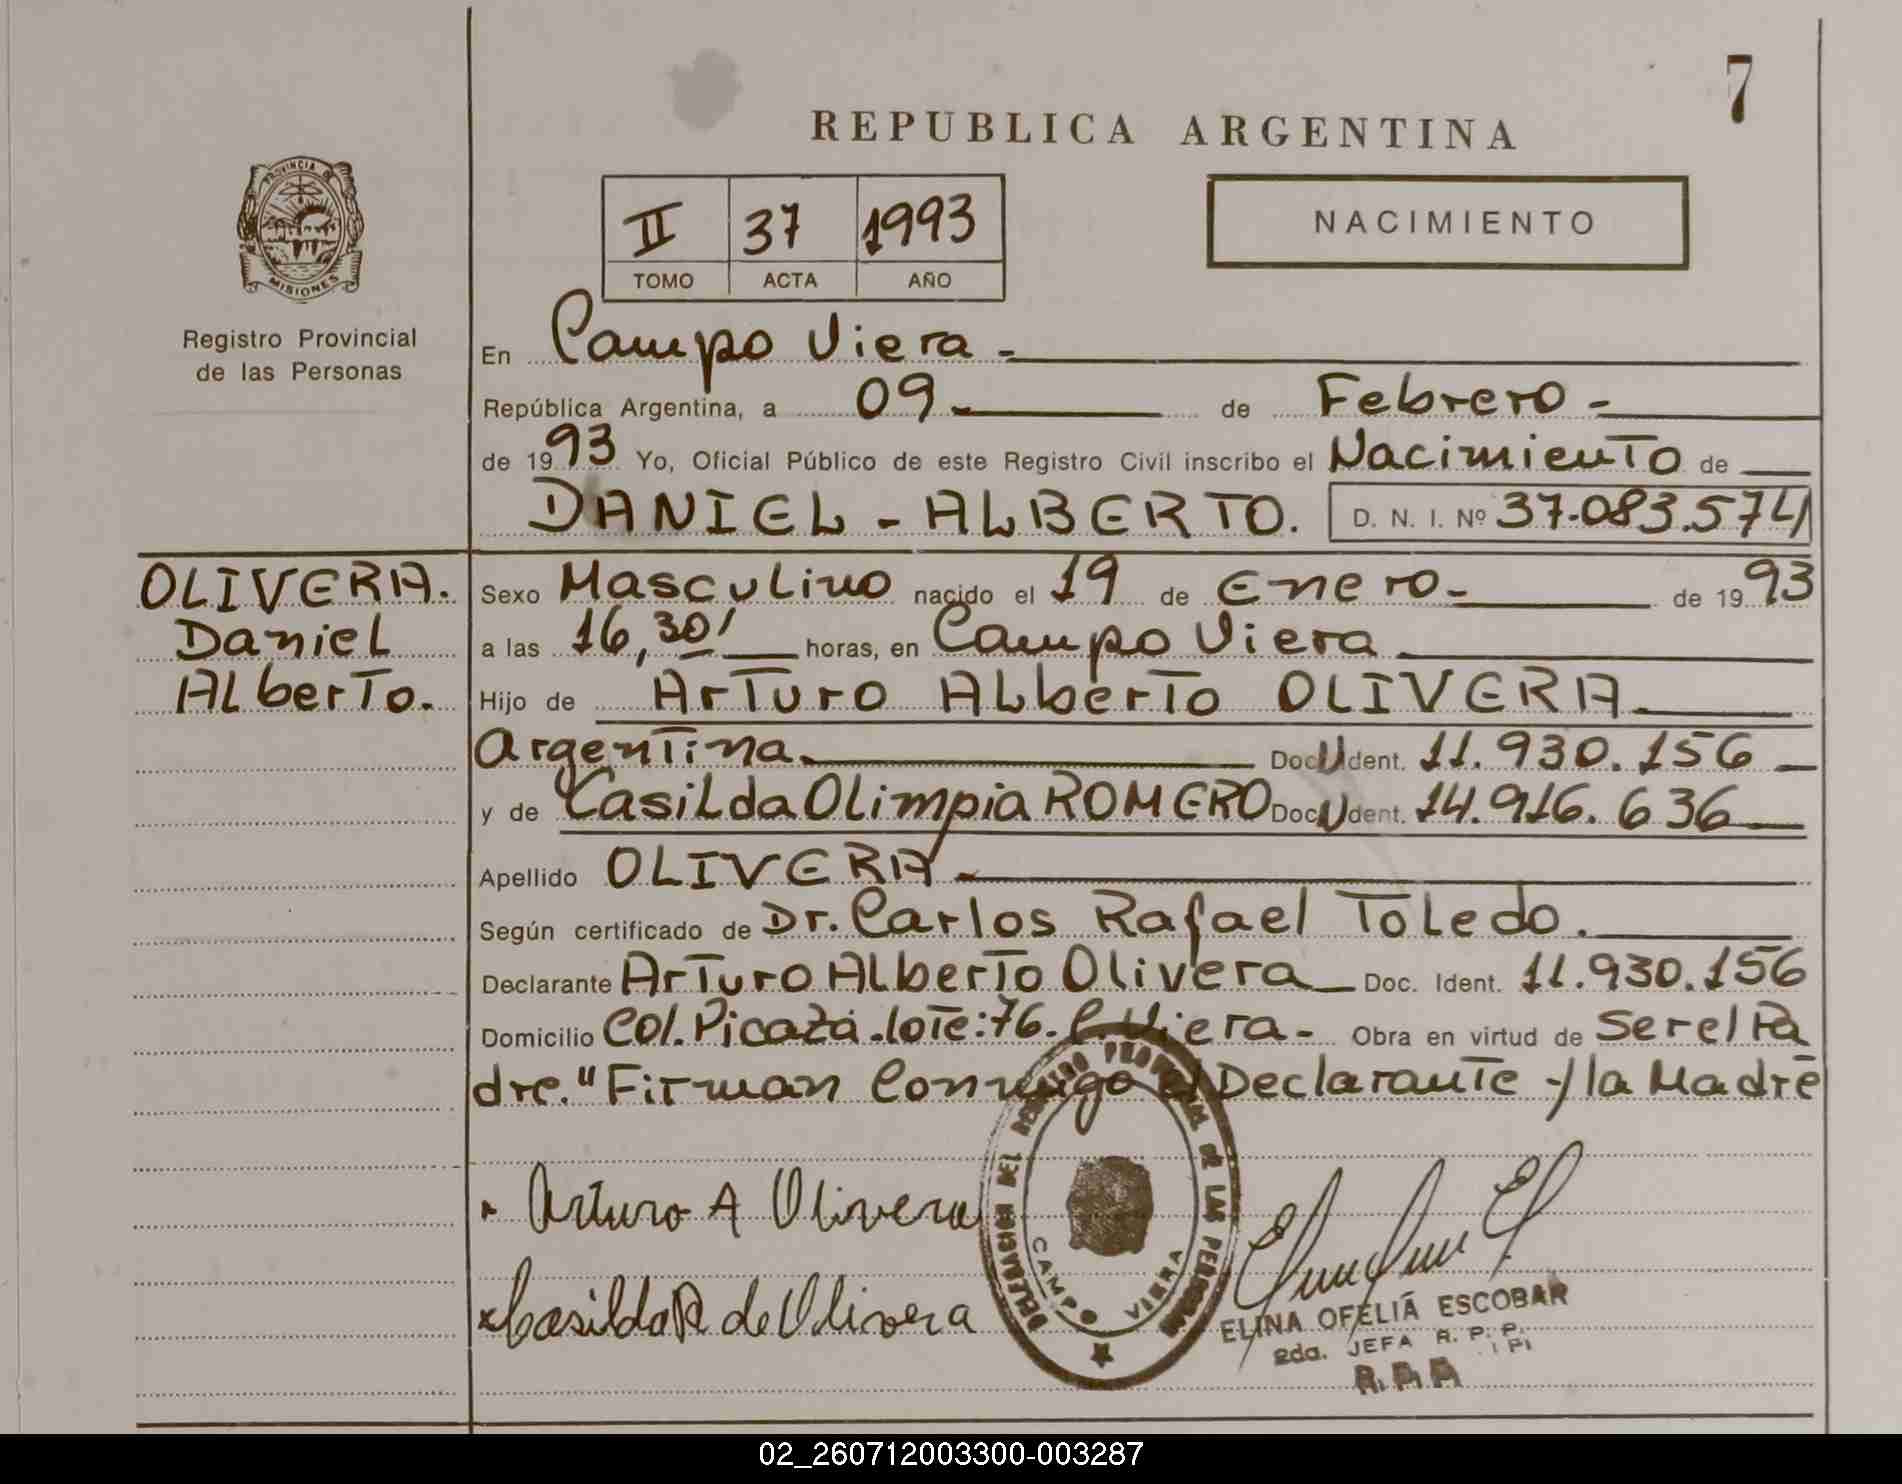 7
REPUBLICA ARGENTINA
PROVINCIA DE
MISIONES
Registro Provincial
de las Personas
II 37 1993
TOMO ACTA AÑO
NACIMIENTO
En Campo Viera -
República Argentina, a 09 - de Febrero -
de 1993 Yo, Oficial Público de este Registro Civil inscribo el Nacimiento de
DANIEL - ALBERTO. D. N. I. Nº 37.083.574
OLIVERA.
Daniel
Alberto.
Sexo Masculino nacido el 19 de Enero - de 1993
a las 16,30' horas, en Campo Viera
Hijo de Arturo Alberto OLIVERA
Argentina. Doc U dent. 11.930.156
y de Casilda Olimpia ROMERO Doc U dent. 14.916.636
Apellido OLIVERA -
Según certificado de Dr. Carlos Rafael Toledo.
Declarante Arturo Alberto Olivera Doc. Ident. 11.930.156
Domicilio Col. Picaza. lote: 76. C. Viera - Obra en virtud de Ser el Pa
dre." Firman Conmigo el Declarante y la Madre
Arturo A Olivera
Casilda R de Olivera
DELEGACION DEL REGISTRO PROVINCIAL DE LAS PERSONAS
CAMPO VIERA
ELINA OFELIA ESCOBAR
2da. JEFA R. P. P.
02_260712003300-003287